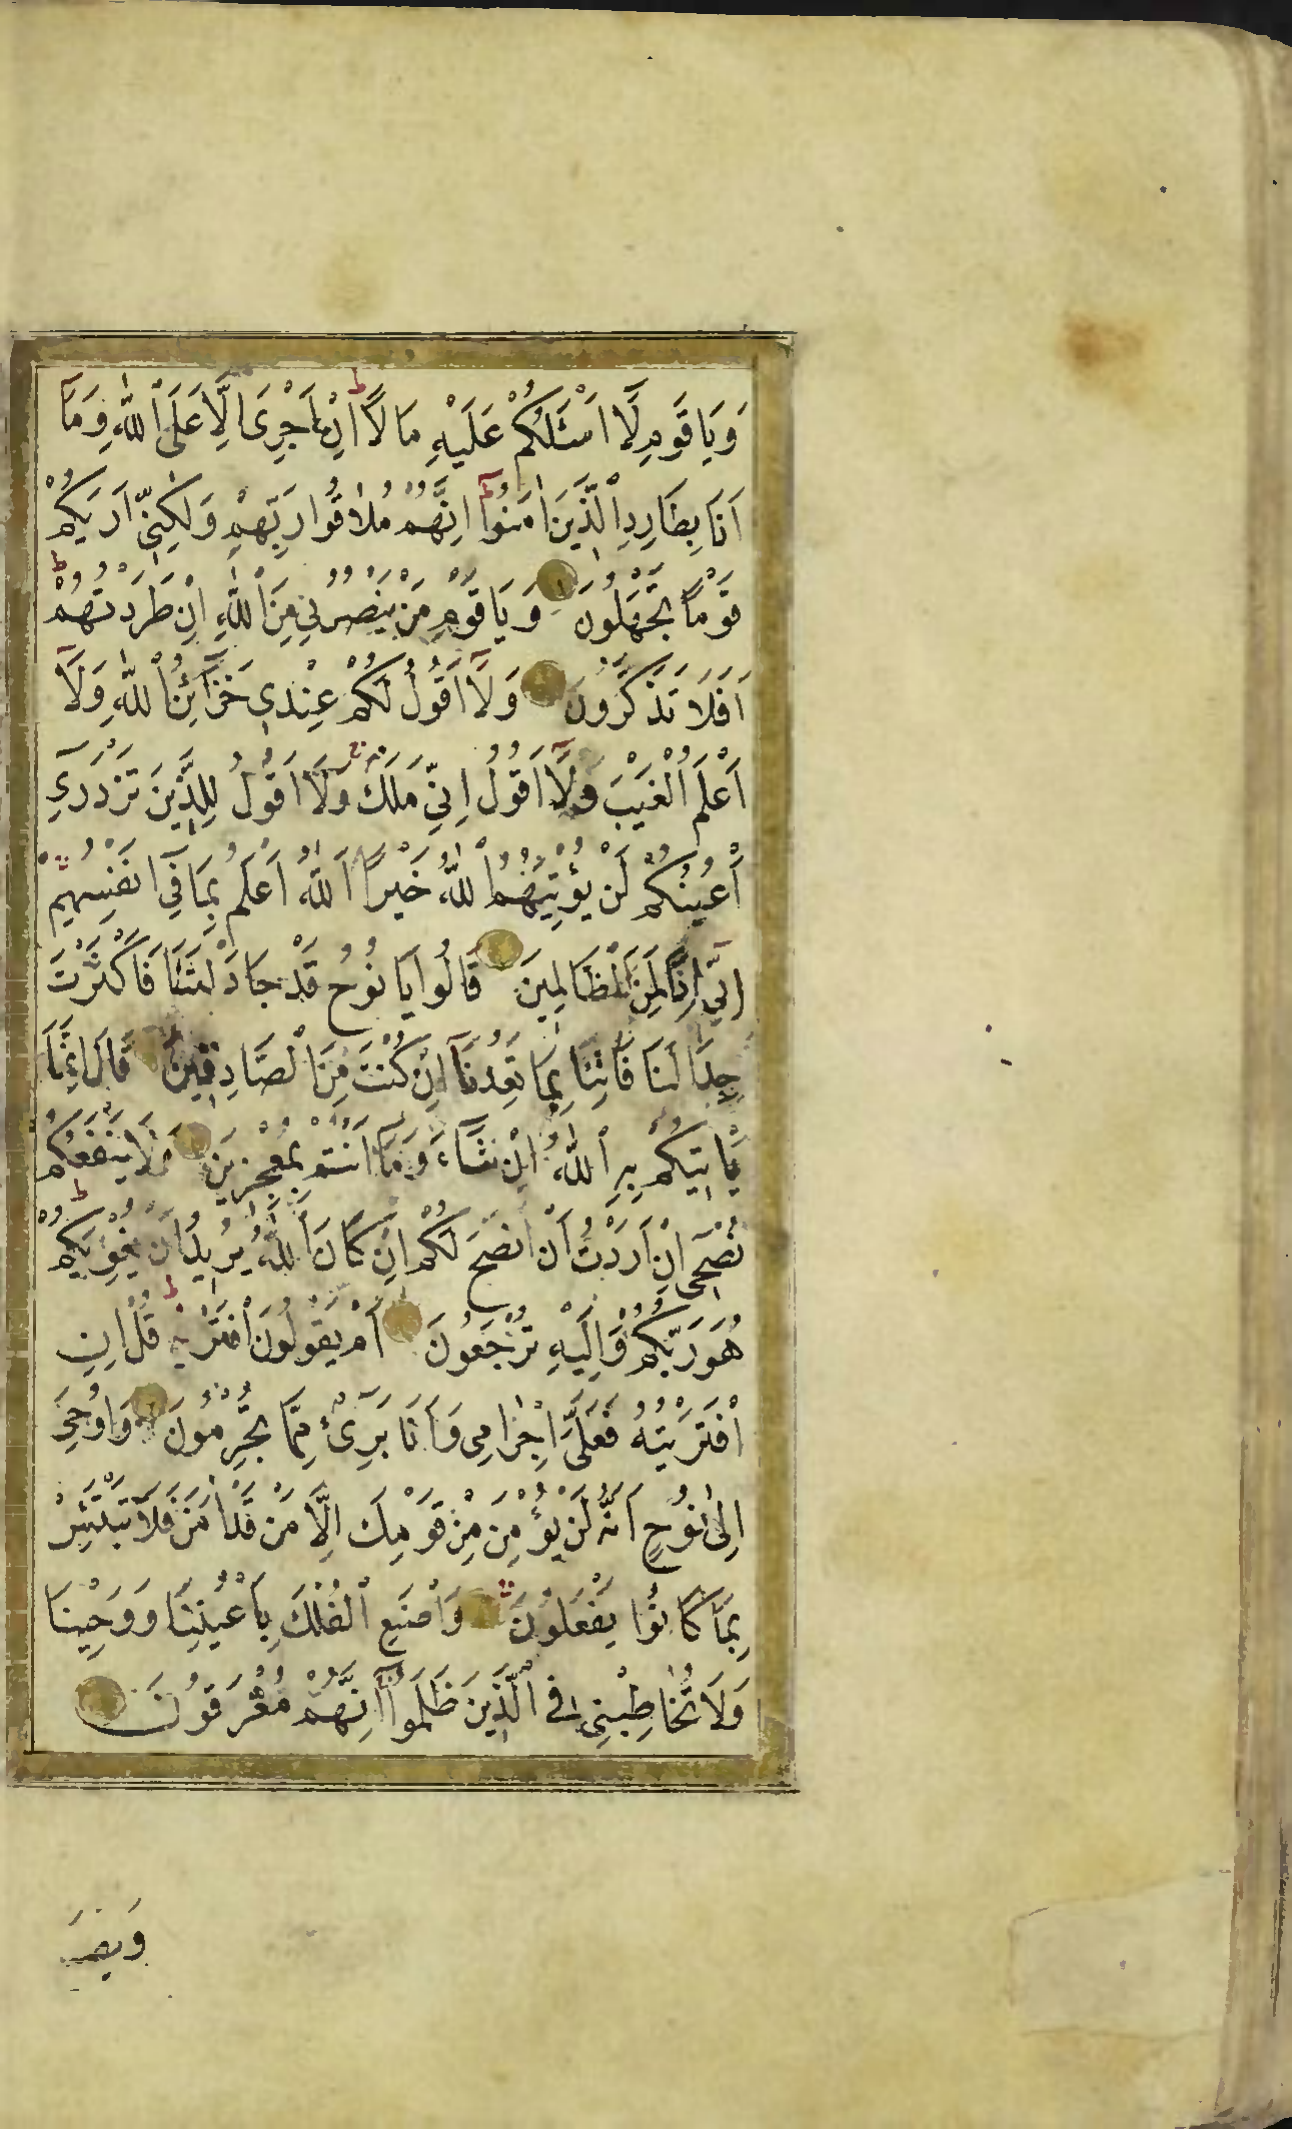 وَيَا قَوْمِ لَٓا اَسْـَٔلُكُمْ عَلَيْهِ مَالًا اِنْ اَجْرِيَ اِلَّا عَلَى اللّٰهِ وَمَٓا
اَنَا بِطَارِدِ الَّذِينَ اٰمَنُوا اِنَّهُمْ مُلَاقُوا رَبِّهِمْ وَلٰكِنِّي اَرٰيكُمْ
قَوْمًا تَجْهَلُونَ وَيَا قَوْمِ مَنْ يَنْصُرُنِي مِنَ اللّٰهِ اِنْ طَرَدْتُهُمْ
اَفَلَا تَذَكَّرُونَ وَلَٓا اَقُولُ لَكُمْ عِنْدِي خَزَٓائِنُ اللّٰهِ وَلَٓا
اَعْلَمُ الْغَيْبَ وَلَٓا اَقُولُ اِنِّي مَلَكٌ وَلَٓا اَقُولُ لِلَّذِينَ تَزْدَرِي
اَعْيُنُكُمْ لَنْ يُؤْتِيَهُمُ اللّٰهُ خَيْرًا اَللّٰهُ اَعْلَمُ بِمَا فِٓي اَنْفُسِهِمْ
اِنِّٓي اِذًا لَمِنَ الظَّالِمِينَ قَالُوا يَا نُوحُ قَدْ جَادَلْتَنَا فَاَكْثَرْتَ
جِدَالَنَا فَأْتِنَا بِمَا تَعِدُنَٓا اِنْ كُنْتَ مِنَ الصَّادِقِينَ قَالَ اِنَّمَا
يَأْتِيكُمْ بِهِ اللّٰهُ اِنْ شَٓاءَ وَمَٓا اَنْتُمْ بِمُعْجِزِينَ وَلَا يَنْفَعُكُمْ
نُصْحِٓي اِنْ اَرَدْتُ اَنْ اَنْصَحَ لَكُمْ اِنْ كَانَ اللّٰهُ يُرِيدُ اَنْ يُغْوِيَكُمْ
هُوَ رَبُّكُمْ وَاِلَيْهِ تُرْجَعُونَ اَمْ يَقُولُونَ افْتَرٰيهُ قُلْ اِنِ
افْتَرَيْتُهُ فَعَلَيَّ اِجْرَامِي وَاَنَا بَرِٓيءٌ مِمَّا تُجْرِمُونَ وَاُوحِيَ
اِلٰى نُوحٍ اَنَّهُ لَنْ يُؤْمِنَ مِنْ قَوْمِكَ اِلَّا مَنْ قَدْ اٰمَنَ فَلَا تَبْتَئِسْ
بِمَا كَانُوا يَفْعَلُونَ وَاصْنَعِ الْفُلْكَ بِاَعْيُنِنَا وَوَحْيِنَا
وَلَا تُخَاطِبْنِي فِي الَّذِينَ ظَلَمُوا اِنَّهُمْ مُغْرَقُونَ
وَيَصْـ